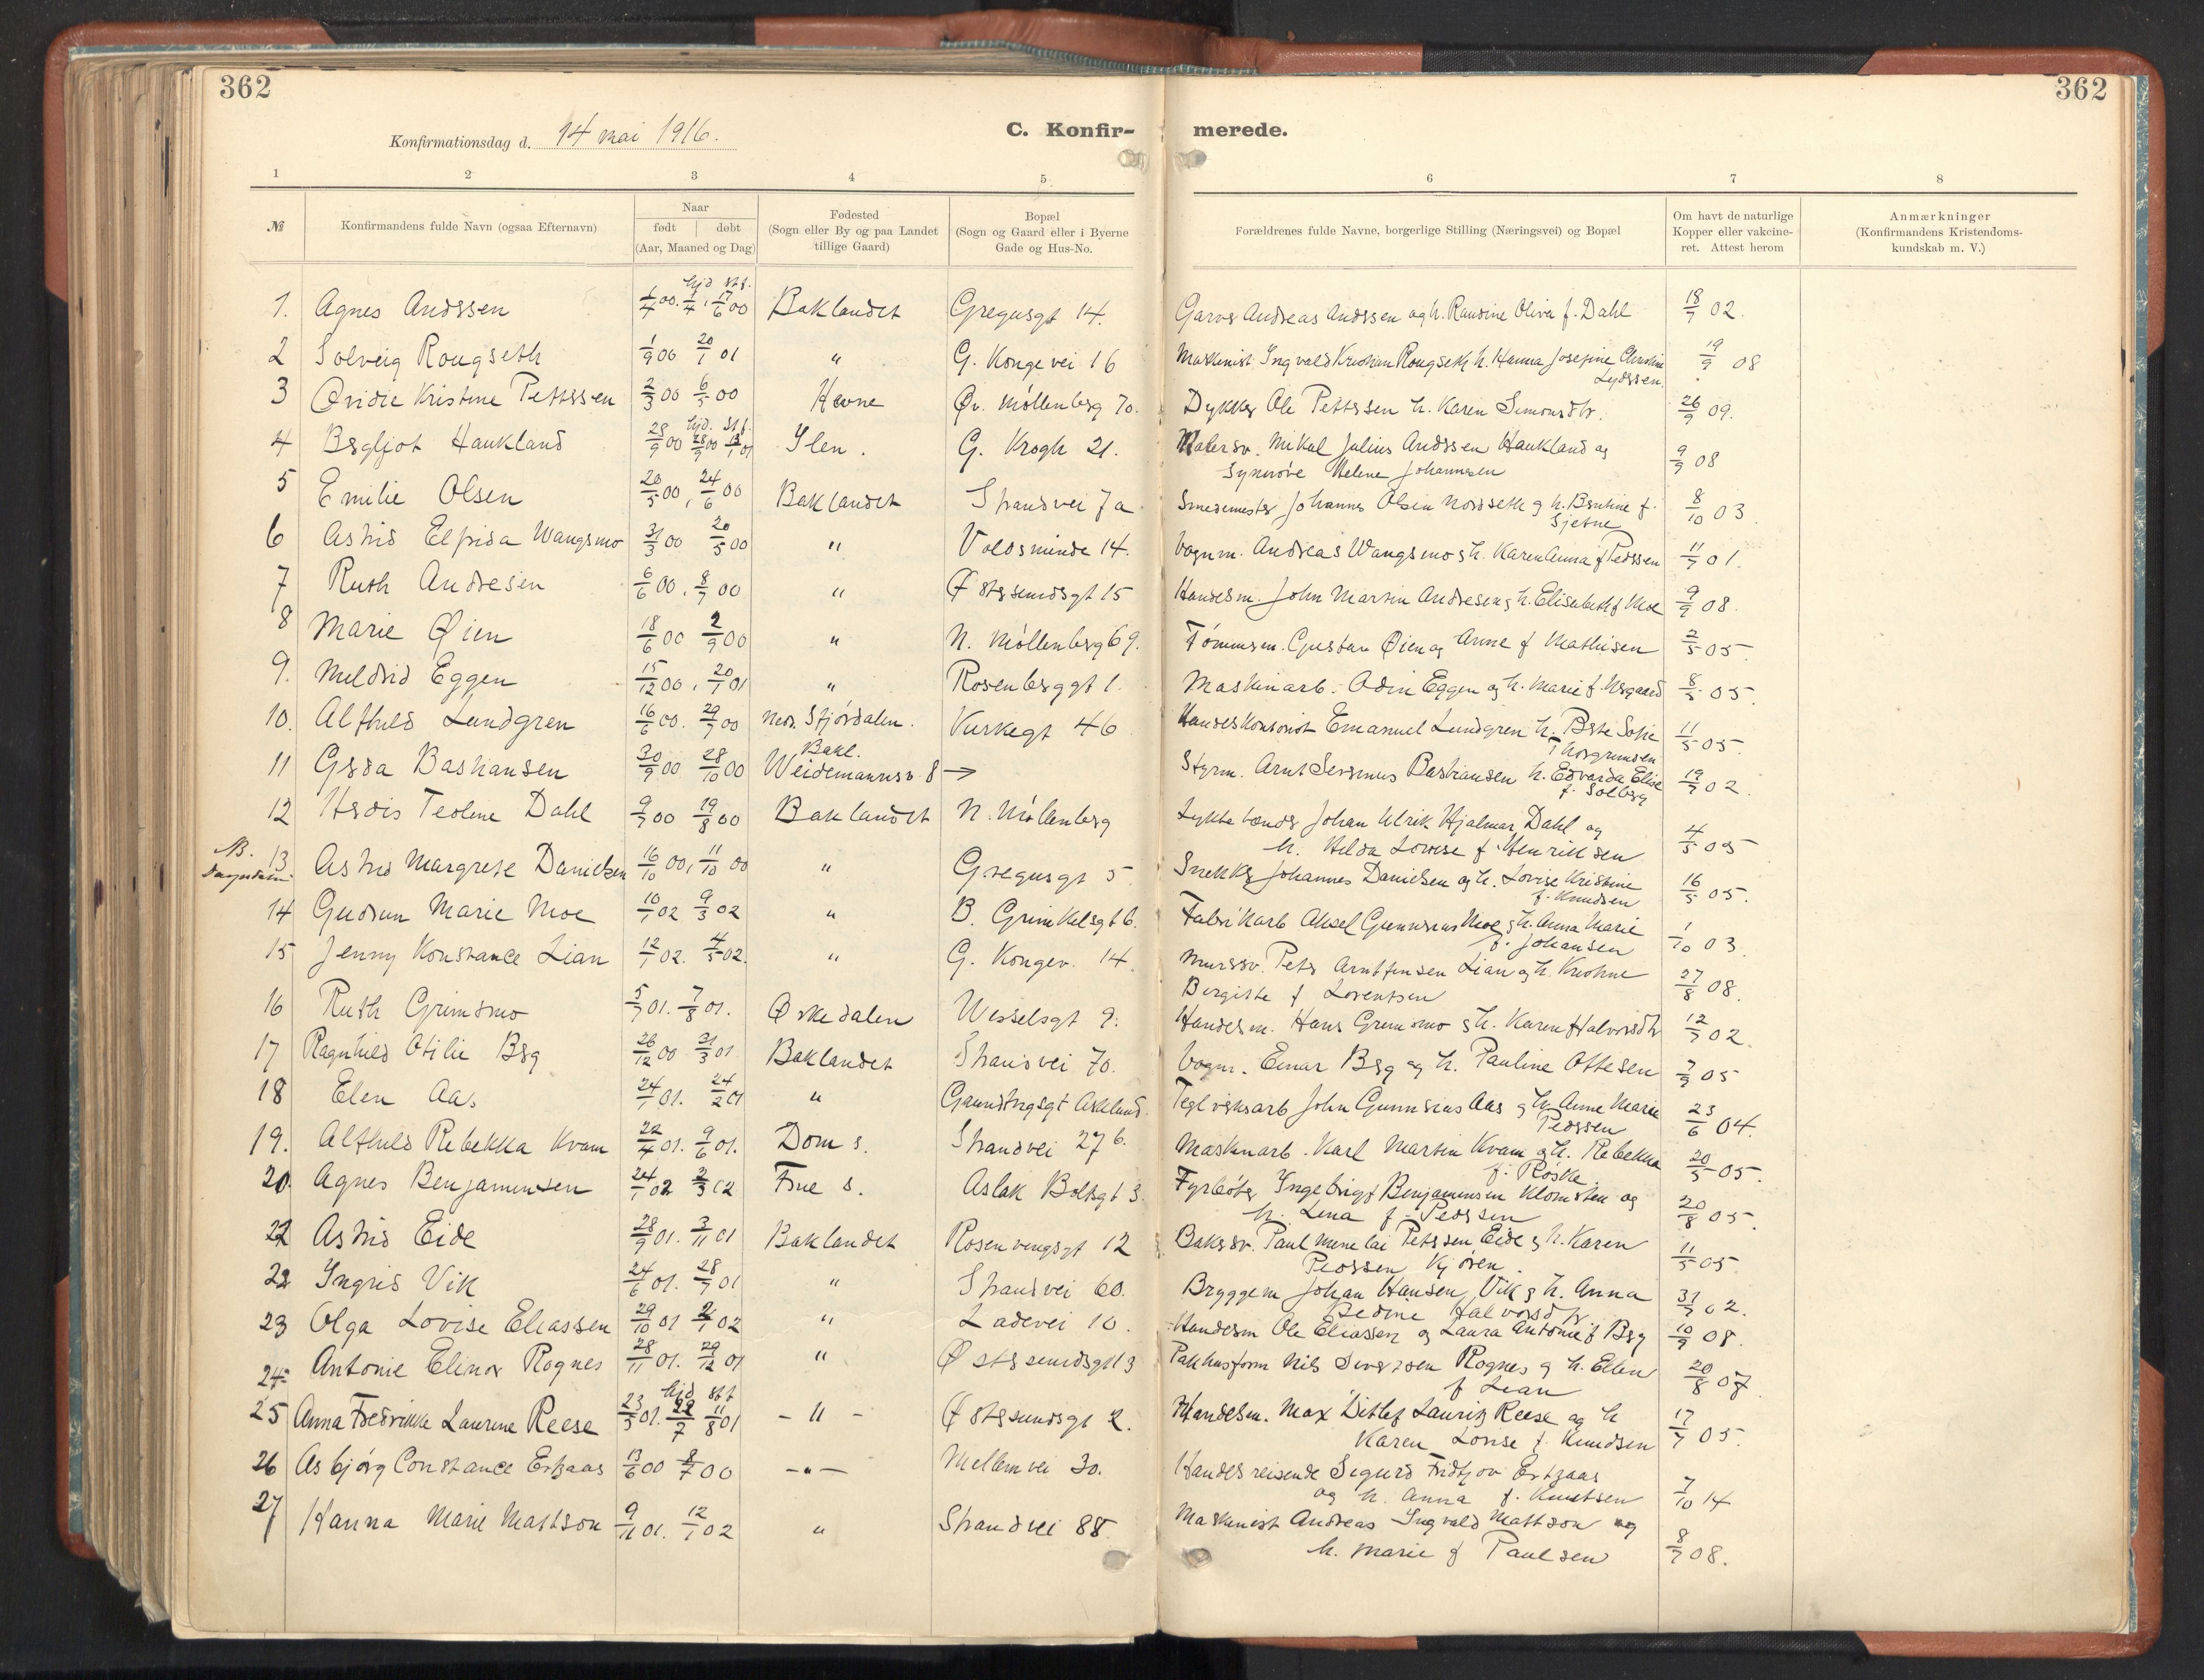 362
362
Konfirmationsdag d. 14 mai 1916.
C. Konfir-
merede.
1 2 3 4 5 6 7 8
№
Konfirmandens fulde Navn (ogsaa Efternavn)
Naar
født | døbt
(Aar, Maaned og Dag)
Fødested
(Sogn eller By og paa Landet
tillige Gaard)
Bopæl
(Sogn og Gaard eller i Byerne
Gade og Hus-No.
Forældrenes fulde Navne, borgerlige Stilling (Næringsvei) og Bopæl
Om havt de naturlige
Kopper eller vakcine-
ret. Attest herom
Anmærkninger
(Konfirmandens Kristendoms-
kundskab m. V.)
hjd. stf.
1. Agnes Anderssen 1/4 00. 1/4, 17/6 00 Baklandet Gregusgt 14. Garver Andreas Anderssen og h. Randine Oliva f. Dahl 18/7 02.
2 Solveig Rougseth 1/9 00 20/1 01 " G. Kongevei 16 Maskinist Ingvald Kristian Rougseth h. Hanna Josefine Christine 19/9 08
Lyderssen.
3 Ovidie Kristine Petterssen 2/3 00 6/5 00 Hevne Øv. Møllenberg 70. Dykker Ole Petterssen h. Karen Simonsdtr. 26/9 09.
hjd. stf.
4 Bergljot Haukland 28/9 00 28/9 00 13/1 01 Ilen. G. Krogh 21. Malersv. Mikal Julius Anderssen Haukland og 9/9 08
Synnøve Helene Johannesen
5 Emilie Olsen 20/5 00, 24/6 00 Baklandet Strandvei 7a Smedemester Johannes Olsen Nordseth og h. Berntine f. 8/10 03
Sjetne
6 Astrid Elfrida Wangsmo 31/3 00 20/5 00 " Voldsminde 14. Vognm. Andreas Wangsmo og h. Karen Anna f Pederssen 11/7 01.
7 Ruth Andresen 6/6 00, 8/7 00 " Østersundsgt 15 Handelsm. John Martin Andresen og h. Elisabeth f Moe 9/9 08.
8 Marie Øien 18/6 00 2/9 00 " N. Møllenberg 69. Tømmerm. Gustav Øien og Anne f Mathisen 2/5 05.
9. Meldrid Eggen 15/12 00, 20/1 01 " Rosenberggt 1. Maskinarb. Odin Eggen og h. Marie f. 8/5 05.
10. Alfhild Lundgren 16/6 00. 29/7 00 Ned. Stjørdalen. Verkegt 46 Handelskontorist Emanuel Lundgren h. Berte Sofie 11/5 05.
Thorgrimsen
Bakl.
11 Gerda Bastiansen 30/9 00 28/10 00 Weidemannsv 8 → Styrm. Arnt Serenius Bastiansen h. Edvarda Elise 19/7 02.
f. Solberg
12 Herdis Teoline Dahl 9/7 00 19/8 00 Baklandet N. Møllenberg Lyktetænder Johan Ulrik Hjalmar Dahl og 4/5 05
h. Hilda Lovise f. Henriksen
13 Astrid Margrete Danielsen 16/10 00, 11/10 00 " Gregusgt 5 Snekker Johannes Danielsen og h. Lovise Kristine 16/5 05.
f. Knudsen
14 Gudrun Marie Moe 10/1 02 9/3 02 " B. Grimkelsgt 6. Fabrikarb Aksel Gunnerius Moe og h. Anna Marie 1/10 03.
f. Johansen
15 Jenny Konstance Lian 12/1 02. 4/5 02. " G. Kongev. 14. Murersv. Peter Arntsen Lian og h. Kristine 27/8 08.
Bergitte f Lorentsen
16 Ruth Grimsmo 5/7 01. 7/8 01. Ørkedalen Wesselsgt 9. Handelsm. Hans Grimsmo og h. Karen Halvorsdtr 12/7 02.
17 Ragnhild Otilie Berg 26/12 00 31/3 01 Baklandet Strandvei 70. Vognm. Einar Berg og h. Pauline Ottesen 7/9 05
18 Elen Aas 24/1 01. 24/2 01 " Gaundtrgsgt Asklund. Teglverksarb John Gunnerius Aas og h. Anne Marie 23/6 04.
Pederssen
19. Alfhild Rebekka Kvam 22/4 01. 9/6 01. Dom s. Strandvei 27 b. Maskinarb. Karl Martin Kvam og h. Rebekka 20/5 05.
f. Røske.
20. Agnes Benjaminsen 24/1 02 2/3 02 Frue s. Aslak Boltsgt 3. Fyrbøter Ingebrigt Benjaminsen Klomsten og 20/8 05.
h. Lena f. Pederssen
22 Astrid Eide 28/9 01. 3/11 01 Baklandet Rosenvengsgt 12 Bakersv. Paul Menelai Peterssen Eide og h. Karen 11/5 05.
Pederssen Kjøren.
22 Ingrid Vik 24/6 01. 28/7 01 " Strandvei 60. Bryggem Johan Hansen Vik og h. Anna 31/7 02.
Bedine Halvorsdtr.
23 Olga Lovise Eliassen 29/10 01 2/1 02 " Ladevei 10. Handelsm Ole Eliassen og Laura Antonie f Berg 10/9 08.
24 Antonie Elinor Rognes 28/11 01. 29/12 01 " Østersundsgt 13 Pakhusform Nils Sivertsen Rognes og h. Ellen 20/8 07.
f Lian
hjd stf
25 Anna Fredrikke Laurine Reese 23/5 01. 22/7 11/8 01 - " - Østersundsgt 2. Handelsm. Max Ditlef Lauritz Reese og h 17/7 05.
Karen Lovise f. Knudsen
26 Asbjørg Constance Ertzaas 13/6 00 8/7 00 - " - Mellemvei 30. Handelsreisende Sigurd Fridtjov Ertzaas 7/10 14
og h. Anna f. Knutsen
27 Hanna Marie Mattson 9/11 01. 12/1 02 " Strandvei 88. Maskinist Andreas Ingvald Mattson og 8/7 08.
h. Marie f Paulsen